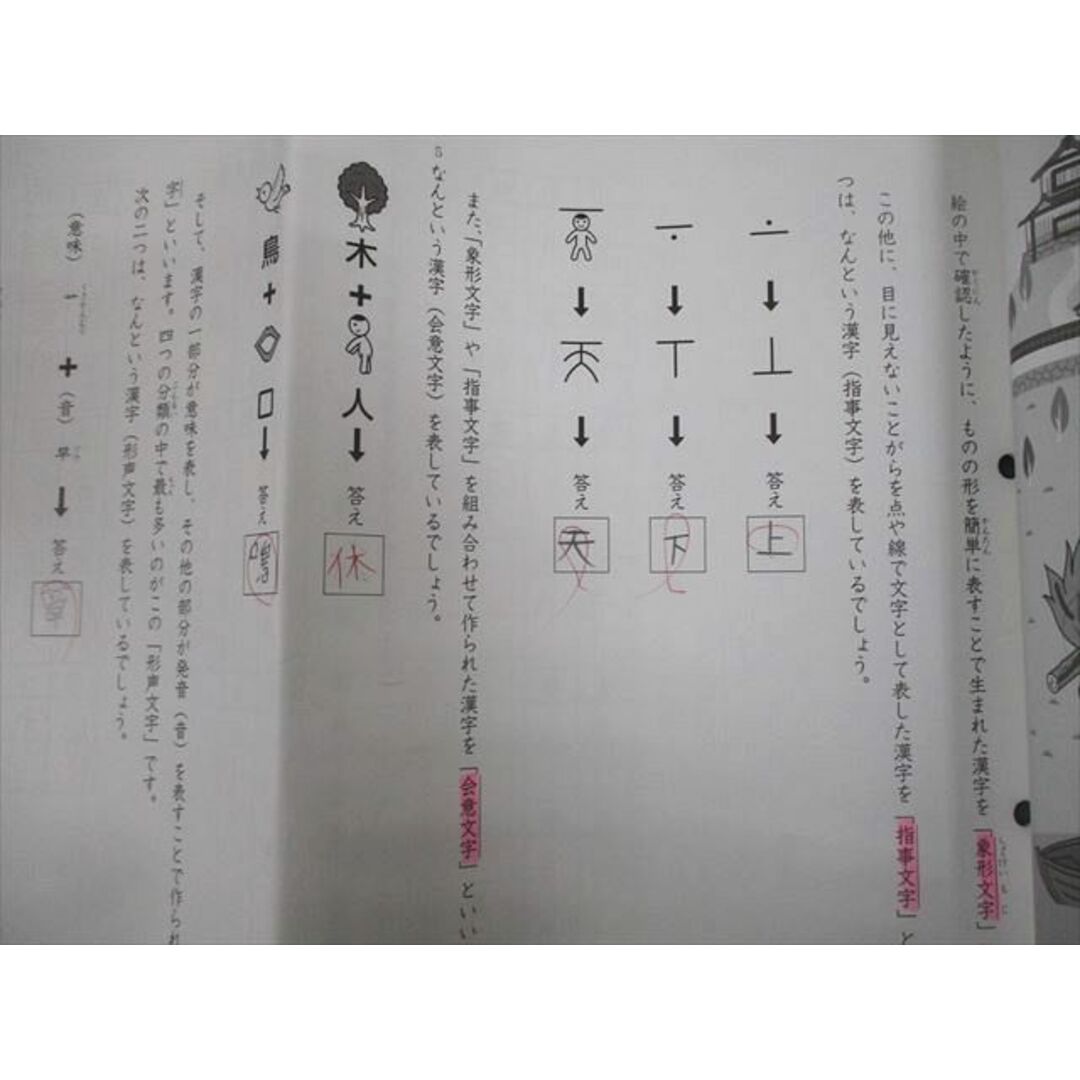 絵の中で確認したように、ものの形を簡単に表すことで生まれた漢字を「象形文字」
この他に、目に見えないことがらを点や線で文字として表した漢字を「指事文字」と
つは、なんという漢字（指事文字）を表しているでしょう。
答え 上
答え 下
答え 天
また、「象形文字」や「指事文字」を組み合わせて作られた漢字を「会意文字」といい
なんという漢字（会意文字）を表しているでしょう。
木 + 人 答え 休
鳥 + 口 答え 鳴
そして、漢字の一部分が意味を表し、その他の部分が発音（音）を表すことで作られ
字」といいます。四つの分類の中で最も多いのがこの「形声文字」です。
次の二つは、なんという漢字（形声文字）を表しているでしょう。
（意味） + （音） 早 答え 草